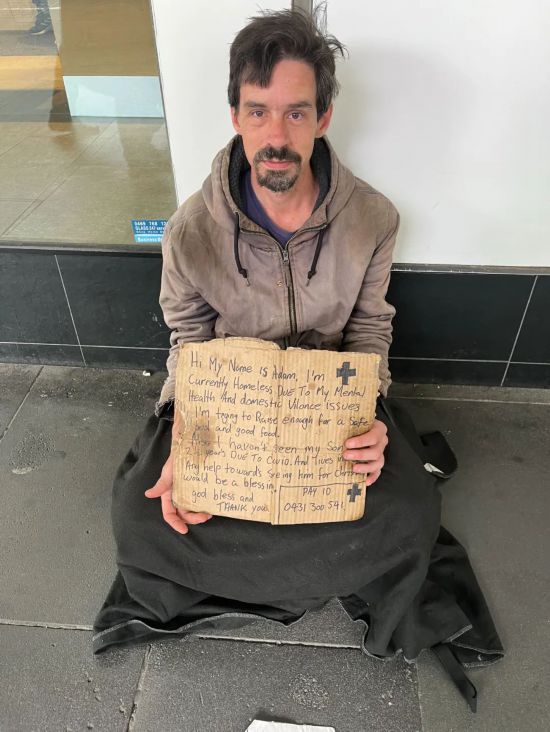 0469 768
GLASS 24/7
Business
Hi My Name is Adam, I'm
Currently Homeless DUE TO My Mental
Health And domestic Vilance issues
I'm trying to Raise enough for a Safe
bed and good food.
Also I haven't seen my Son
2 years DUE To Covid. And lives in
Any help towards seeing him for Christ
would be a blessing
god bless and
THANK you.
PAY ID
0431 300 541.